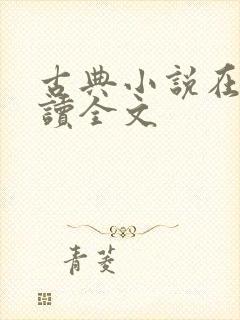 古典小說在
讀全文
青菱